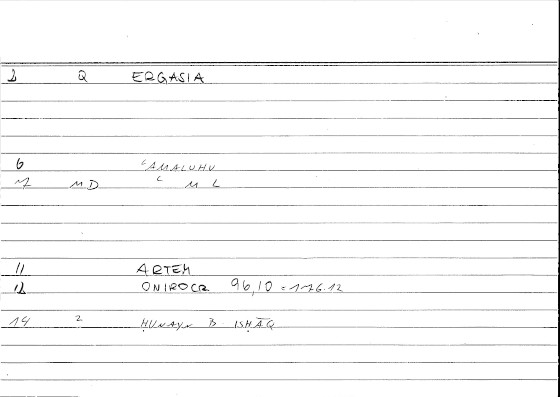 1 Q ERGASIA
6 ʿAMALUHU
7 MD ʿ M L
11 ARTEM
12 ONIROCR 96,10 = 176.12
14 2 ḤUNAYN B ISḤĀQ